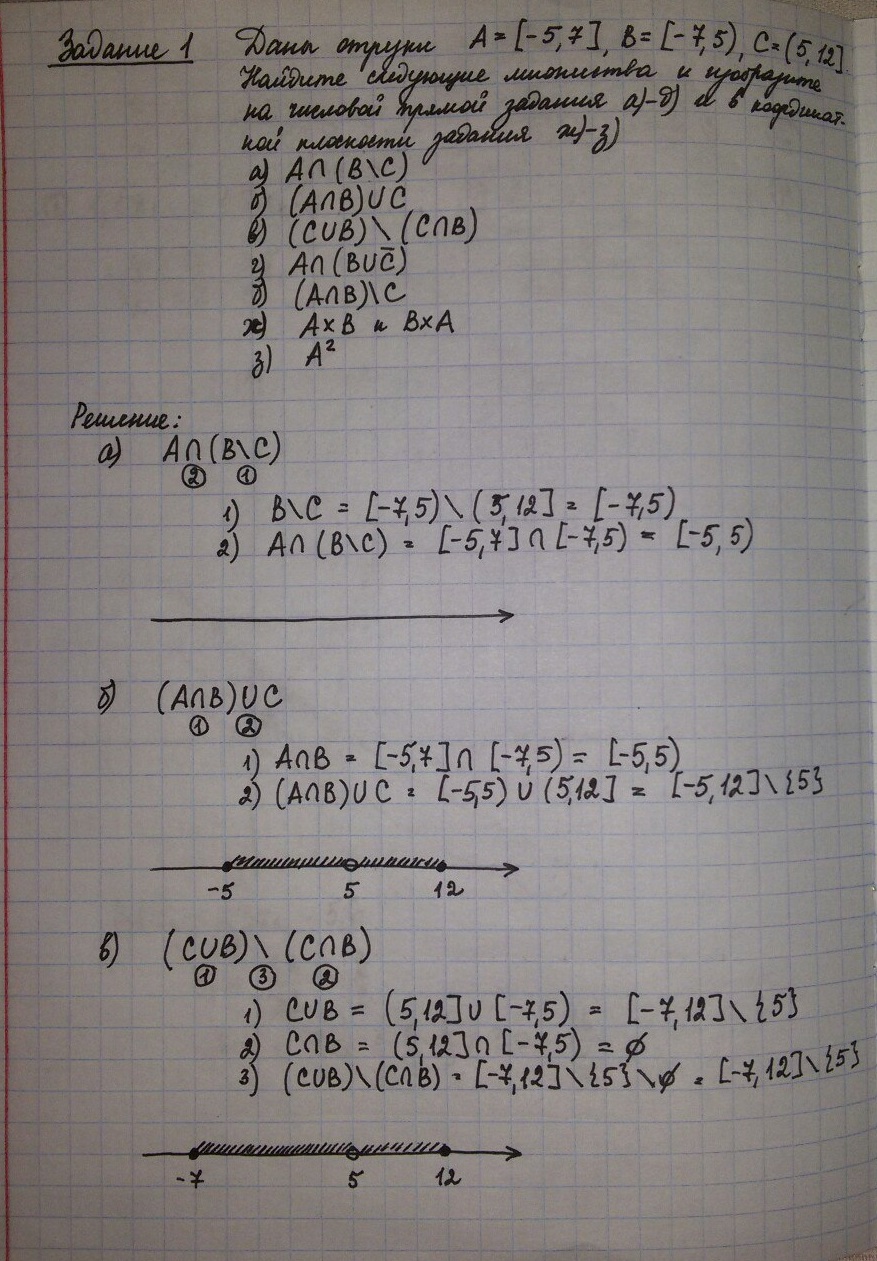 Задание 1 Даны отрезки A = [-5,7], B = [-7,5), C = (5,12].
Найдите следующие множества и изобразите
на числовой прямой задания а)-д) и в координат-
ной плоскости задания ж)-з)
а) A∩(B\C)
б) (A∩B)∪C
в) (C∪B)\(C∩B)
г) A∩(B∪C̅)
д) (A∩B)\C
ж) A×B и B×A
з) A²
Решение:
а) A∩(B\C)
② ①
1) B\C = [-7,5)\(5,12] = [-7,5)
2) A∩(B\C) = [-5,7]∩[-7,5) = [-5,5)
б) (A∩B)∪C
① ②
1) A∩B = [-5,7]∩[-7,5) = [-5,5)
2) (A∩B)∪C = [-5,5)∪(5,12] = [-5,12]\{5}
-5 5 12
в) (C∪B)\(C∩B)
① ③ ②
1) C∪B = (5,12]∪[-7,5) = [-7,12]\{5}
2) C∩B = (5,12]∩[-7,5) = ∅
3) (C∪B)\(C∩B) = [-7,12]\{5}\∅ = [-7,12]\{5}
-7 5 12